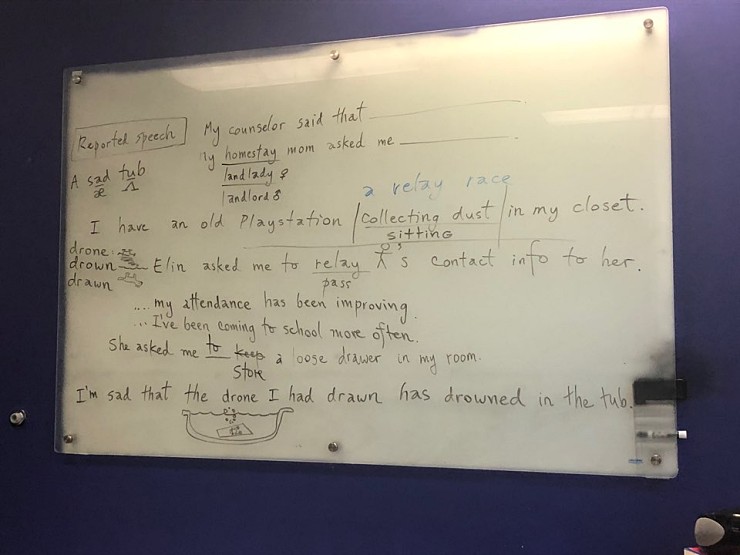 Reported speech
My counselor said that
My homestay mom asked me
landlady ♀
landlord ♂
A sad tub
æ ʌ
a relay race
I have an old Playstation / collecting dust / in my closet.
sitting
drone:
drown
drawn
Elin asked me to relay 's contact info to her.
pass
.... my attendance has been improving.
... I've been coming to school more often.
She asked me to keep a loose drawer in my room.
store
I'm sad that the drone I had drawn has drowned in the tub.